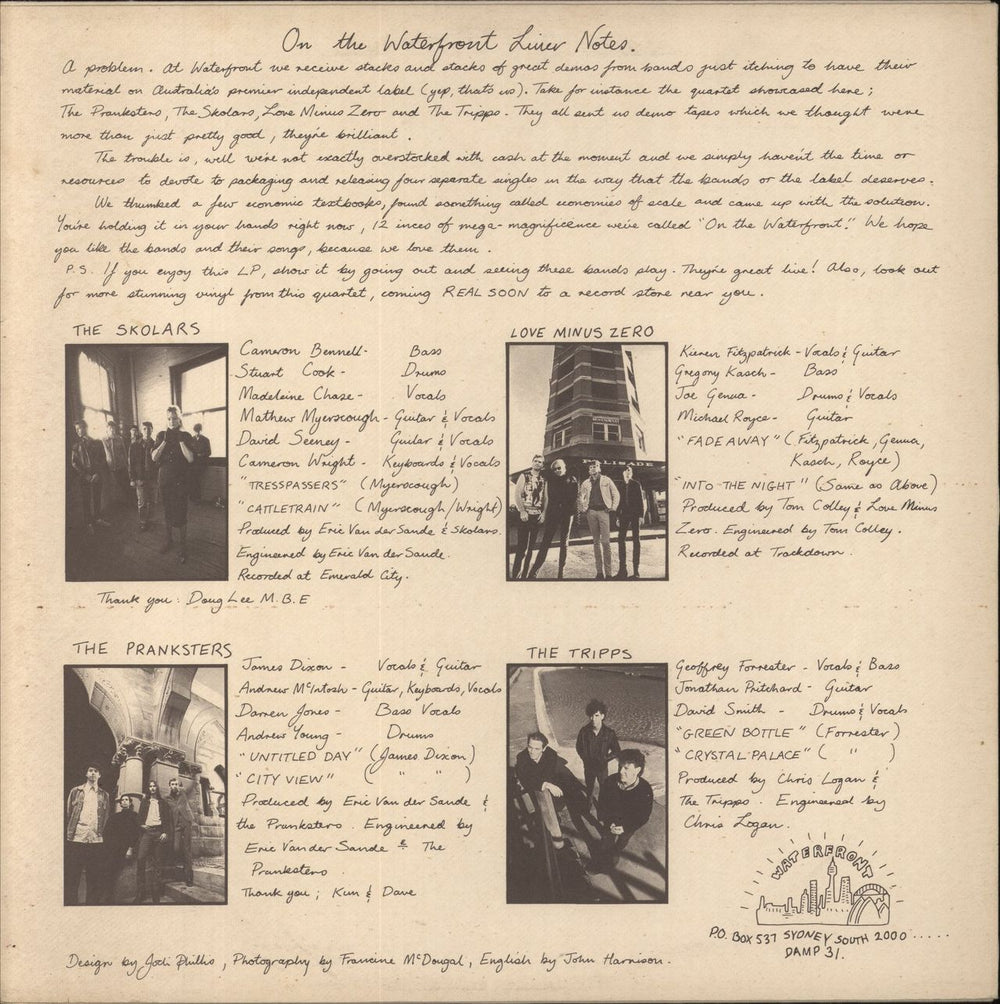 On the Waterfront Liner Notes.
A problem. At Waterfront we receive stacks and stacks of great demos from bands just itching to have their
material on Australia's premier independent label (yep, that's us). Take for instance the quartet showcased here;
The Pranksters, The Skolars, Love Minus Zero and The Tripps. They all sent us demo tapes which we thought were
more than just pretty good, they're brilliant.
The trouble is, well we're not exactly overstocked with cash at the moment and we simply haven't the time or
resources to devote to packaging and releasing four separate singles in the way that the bands or the label deserves.
We thumbed a few economic textbooks, found something called economies of scale and came up with the solution.
You're holding it in your hands right now, 12 inces of mega-magnificence we've called "On the Waterfront". We hope
you like the bands and their songs, because we love them.
P.S. If you enjoy this LP, show it by going out and seeing these bands play. They're great live! Also, look out
for more stunning vinyl from this quartet, coming REAL SOON to a record store near you.
THE SKOLARS
Cameron Bennell- Bass
Stuart Cook- Drums
Madeleine Chase- Vocals
Mathew Myerscough- Guitar & Vocals
David Seeney- Guitar & Vocals
Cameron Wright- Keyboards & Vocals
"TRESSPASSERS" (Myerscough)
"CATTLETRAIN" (Myerscough/Wright)
Produced by Eric Van der Sande & Skolars.
Engineered by Eric Van der Sande.
Recorded at Emerald City.
Thank you: Doug Lee M.B.E
LOVE MINUS ZERO
PALISADE
Kieren Fitzpatrick - Vocals & Guitar
Gregory Kasch- Bass
Joe Genua- Drums & Vocals
Michael Royce- Guitar
"FADE AWAY" (Fitzpatrick, Genua,
Kasch, Royce)
"INTO THE NIGHT" (Same as Above)
Produced by Tom Colley & Love Minus
Zero. Engineered by Tom Colley.
Recorded at Trackdown.
THE PRANKSTERS
James Dixon - Vocals & Guitar
Andrew McIntosh- Guitar, Keyboards, Vocals
Darren Jones- Bass Vocals
Andrew Young- Drums
"UNTITLED DAY" (James Dixon)
"CITY VIEW" ( " " )
Produced by Eric Van der Sande &
the Pranksters. Engineered by
Eric Van der Sande & The
Pranksters.
Thank you; Kim & Dave
THE TRIPPS
Geoffrey Forrester - Vocals & Bass
Jonathan Pritchard- Guitar
David Smith - Drums & Vocals
"GREEN BOTTLE" (Forrester)
"CRYSTAL PALACE" ( " )
Produced by Chris Logan &
The Tripps. Engineered by
Chris Logan.
WATERFRONT
P.O. BOX 537 SYDNEY SOUTH 2000.....
DAMP 31.
Design by Jodi Phillis, Photography by Francine McDougal, English by John Harrison.